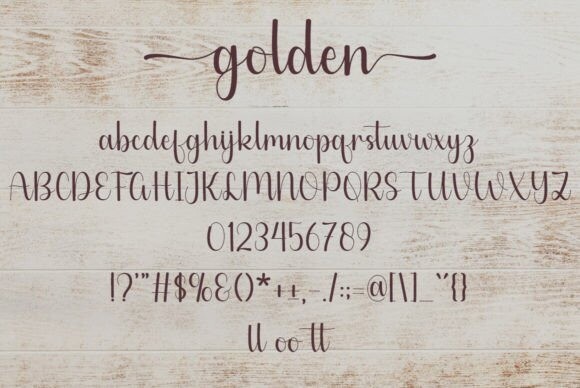 golden
abcdefghijklmnopqrstuvwxyz
ABCDEFGHIJKLMNOPQRSTUVWXYZ
0123456789
!?'"#$%&()*++,-./:;=@[\]_`"{}
ll oo tt